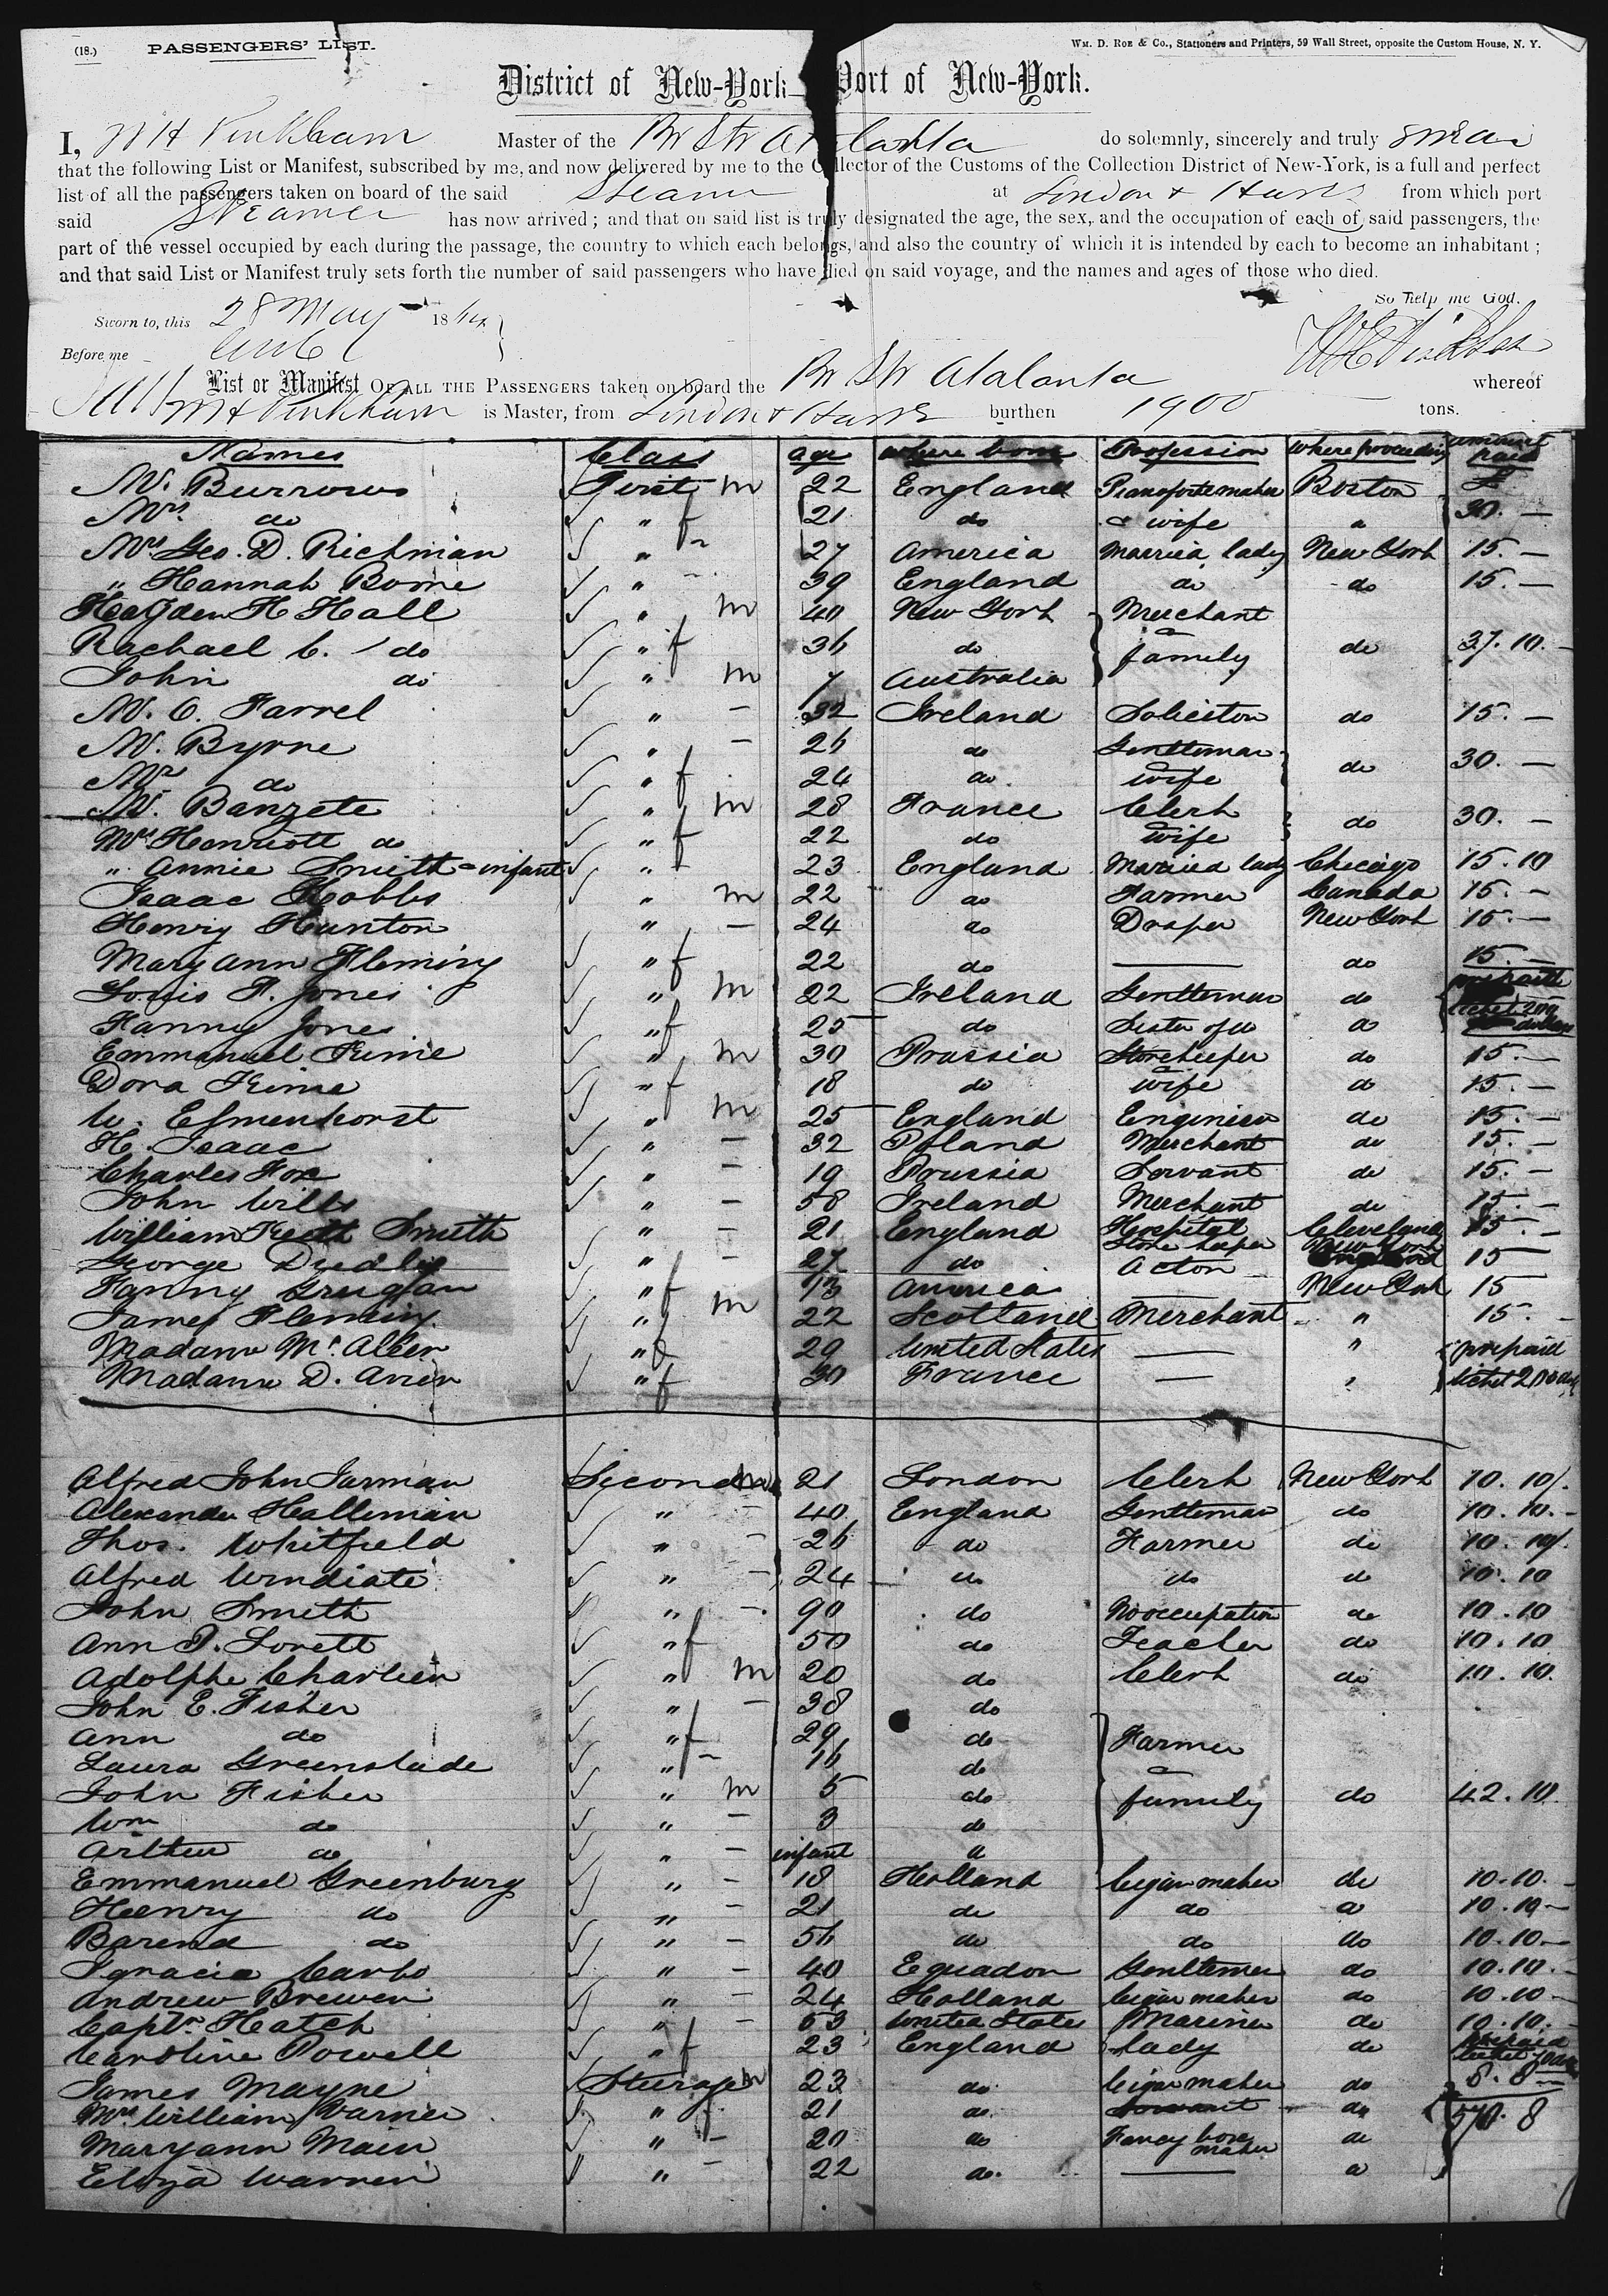 (18.) PASSENGERS' LIST.
WM. D. ROE & Co., Stationers and Printers, 59 Wall Street, opposite the Custom House, N. Y.
District of New-York Port of New-York.
I, W H Pinkham Master of the Br Str Atalanta do solemnly, sincerely and truly swear
that the following List or Manifest, subscribed by me, and now delivered by me to the Collector of the Customs of the Collection District of New-York, is a full and perfect
list of all the passengers taken on board of the said Steamer at London & Havre from which port
said Steamer has now arrived; and that on said list is truly designated the age, the sex, and the occupation of each of said passengers, the
part of the vessel occupied by each during the passage, the country to which each belongs, and also the country of which it is intended by each to become an inhabitant;
and that said List or Manifest truly sets forth the number of said passengers who have died on said voyage, and the names and ages of those who died.
So help me God.
Sworn to, this 28 May 1864
Before me
List or Manifest OF ALL THE PASSENGERS taken on board the Br Str Atalanta whereof
W H Pinkham is Master, from London & Havre burthen 1900 tons.
Names Class age where born Profession where proceeding amount paid
Mr. Burrows First m 22 England Pianoforte maker Boston £
Mrs. do " f 21 do " wife " 30. —
Mrs Geo. D. Richman " " 27 America Married lady New York 15. —
" Hannah Borne " " 39 England do do 15. —
Hayden H Hall " m 40 New York Merchant
Rachael C. do " f 36 do & family do 37. 10. -
John do " m 7 Australia
M. O. Farrel " — 32 Ireland Soliciton do 15. —
M. Byrne " — 26 do Gentleman
Mrs do " f 24 do wife do 30. —
M. Banzete " m 28 France Clerk
Mrs Henriott do " f 22 do wife do 30. —
" Annie Smith & infant " - 23 England Married lady Chicago 15. 10
Isaac Hobbs " m 22 do Farmer Canada 15. —
Henry Hunton " — 24 do Draper New York 15. —
Mary Ann Fleming " f 22 do — do 15. —
Louis F. Jones " m 22 Ireland Gentleman do prepaid
Fanny Jones " f 25 do Sister of do do ticket 200 dollars
Emmanuel Kime " m 30 Prussia Storekeeper do 15. —
Dora Kime " f 18 do wife do 15. —
W. Esmenhorst " m 25 England Enginieer do 15. —
H. Isaac " — 32 Poland Merchant do 15. —
Charles Fox " — 19 Prussia Servant do 15. —
John Wills " — 58 Ireland Merchant do 15. —
William Keith Smith " — 21 England Hospital Store keeper Cleveland 15. —
George Dudley " — 27 do Acton New York 15
Fanny Grugan " f 13 America — New York 15
James Fleming " m 22 Scotland Merchant " 15. -
Madame Mc Allen " f 29 United States — " prepaid
Madame D. Avien " f 30 France — " ticket 200
Alfred John Jarman Second m 21 London Clerk New York 10. 10/.
Alexander Halleman " - 40 England Gentleman do 10. 10. -
Thos. Whitfield " — 26 do Farmer do 10. 10/.
Alfred Windiate " — 24 do do do 10. 10
John Smith " — 90 do No occupation do 10. 10
Ann P. Lovett " f 50 do Teacher do 10. 10
Adolphe Charlien " m 20 do Clerk do 10. 10
John E. Fisher " — 38 do
Ann do " f 29 do Farmer
Laura Greenslade " - 16 do &
John Fisher " m 5 do family do 42. 10.
Wm do " — 3 do
Arthur do " — infant do
Emmanuel Greenburg " — 18 Holland Cigar maker do 10. 10. -
Henry do " — 21 do do do 10. 10 —
Barend do " — 56 do do do 10. 10 —
Ignacia Carbo " — 40 Equador Gentleman do 10. 10. -
Andrew Brewer " — 24 Holland Cigar maker do 10. 10 —
Captn. Hatch " — 53 United States Mariner do 10. 10. -
Caroline Powell " f 23 England lady do prepaid ticket
James Mayne Steerage m 23 do Cigar maker do 8. 8 —
Mrs William Varner " f 21 do do
Maryann Main " - 20 do Fancy box maker do
Eliza Warren " - 22 do. — do